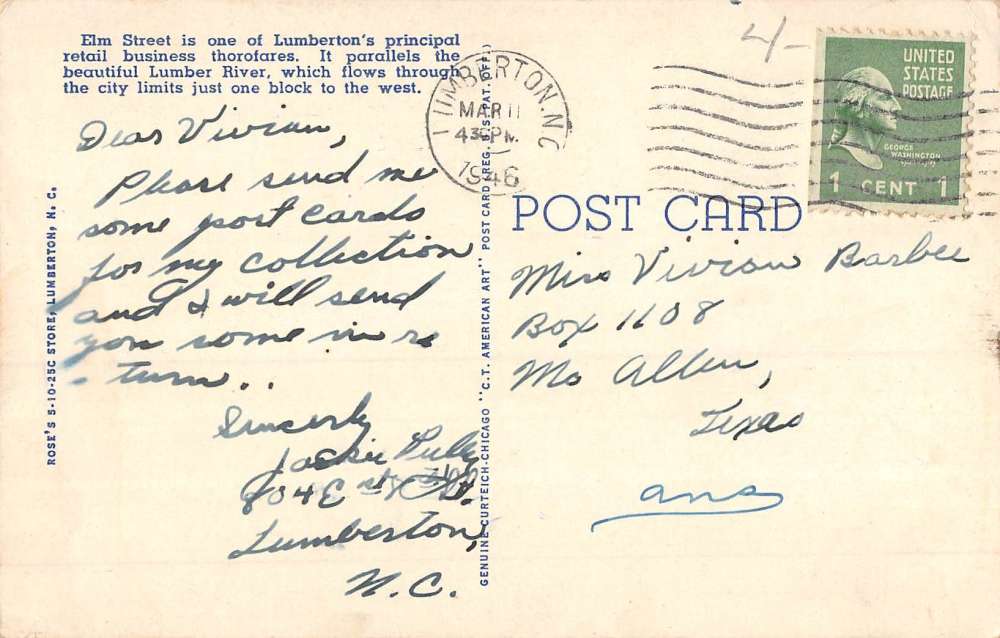 Elm Street is one of Lumberton's principal
retail business thorofares. It parallels the
beautiful Lumber River, which flows through
the city limits just one block to the west.
Dear Vivian,
Please send me
some post cards
for my collection
and I will send
you some in re
- turn..
Sincerly
Jackie
804 E
Lumberton,
N.C.
ROSE'S 5-10-25C STORE, LUMBERTON, N. C.
GENUINE CURTEICH-CHICAGO "C.T. AMERICAN ART" POST CARD (REG. U.S. PAT. OFF.)
LUMBERTON, N.C.
MAR 11
430 PM
1946
4-
UNITED
STATES
POSTAGE
GEORGE
WASHINGTON
1 CENT 1
POST CARD
Miss Vivian Barbee
Box 1108
Mc Allen,
Texas
ans